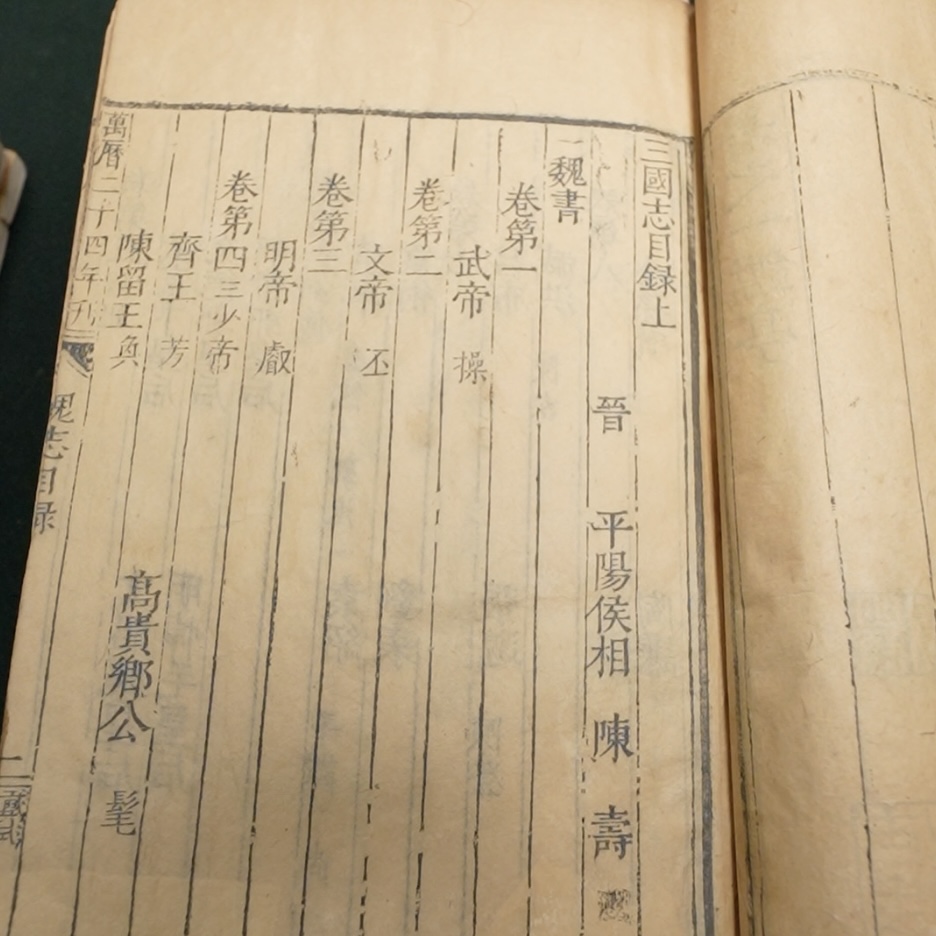 三國志目録上
晉 平陽侯相 陳 壽
魏書
卷第一
武帝 操
卷第二
文帝 丕
卷第三
明帝 叡
卷第四 三少帝
齊王 芳 高貴鄉公 髦
陳留王 奐
萬曆二十四年刊 魏志目録 二